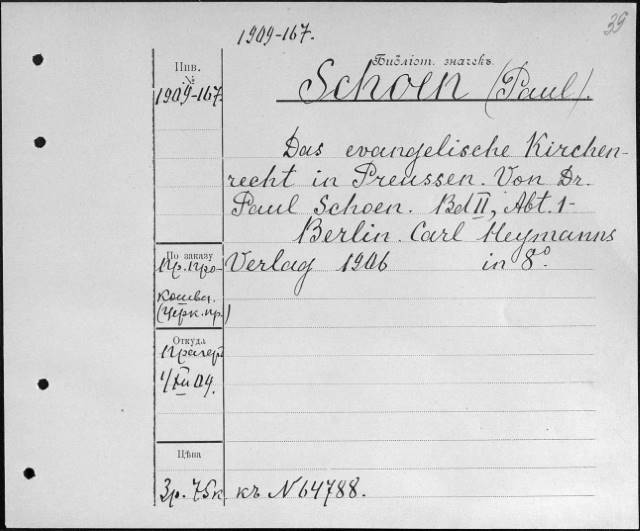 39
1909-167.
Инв.
№
1909-167.
Библіот. значекъ.
Schoen (Paul).
Das evangelische Kirchen-
recht in Preussen. Von Dr.
Paul Schoen. Bd II, Abt. 1-
Berlin. Carl Heymanns
Verlag 1906 in 8º.
По заказу
Пр. Про-
кошева.
(Церк. пр.)
Откуда
Прагеръ
Цѣна
3р. 75к. къ N 64788.